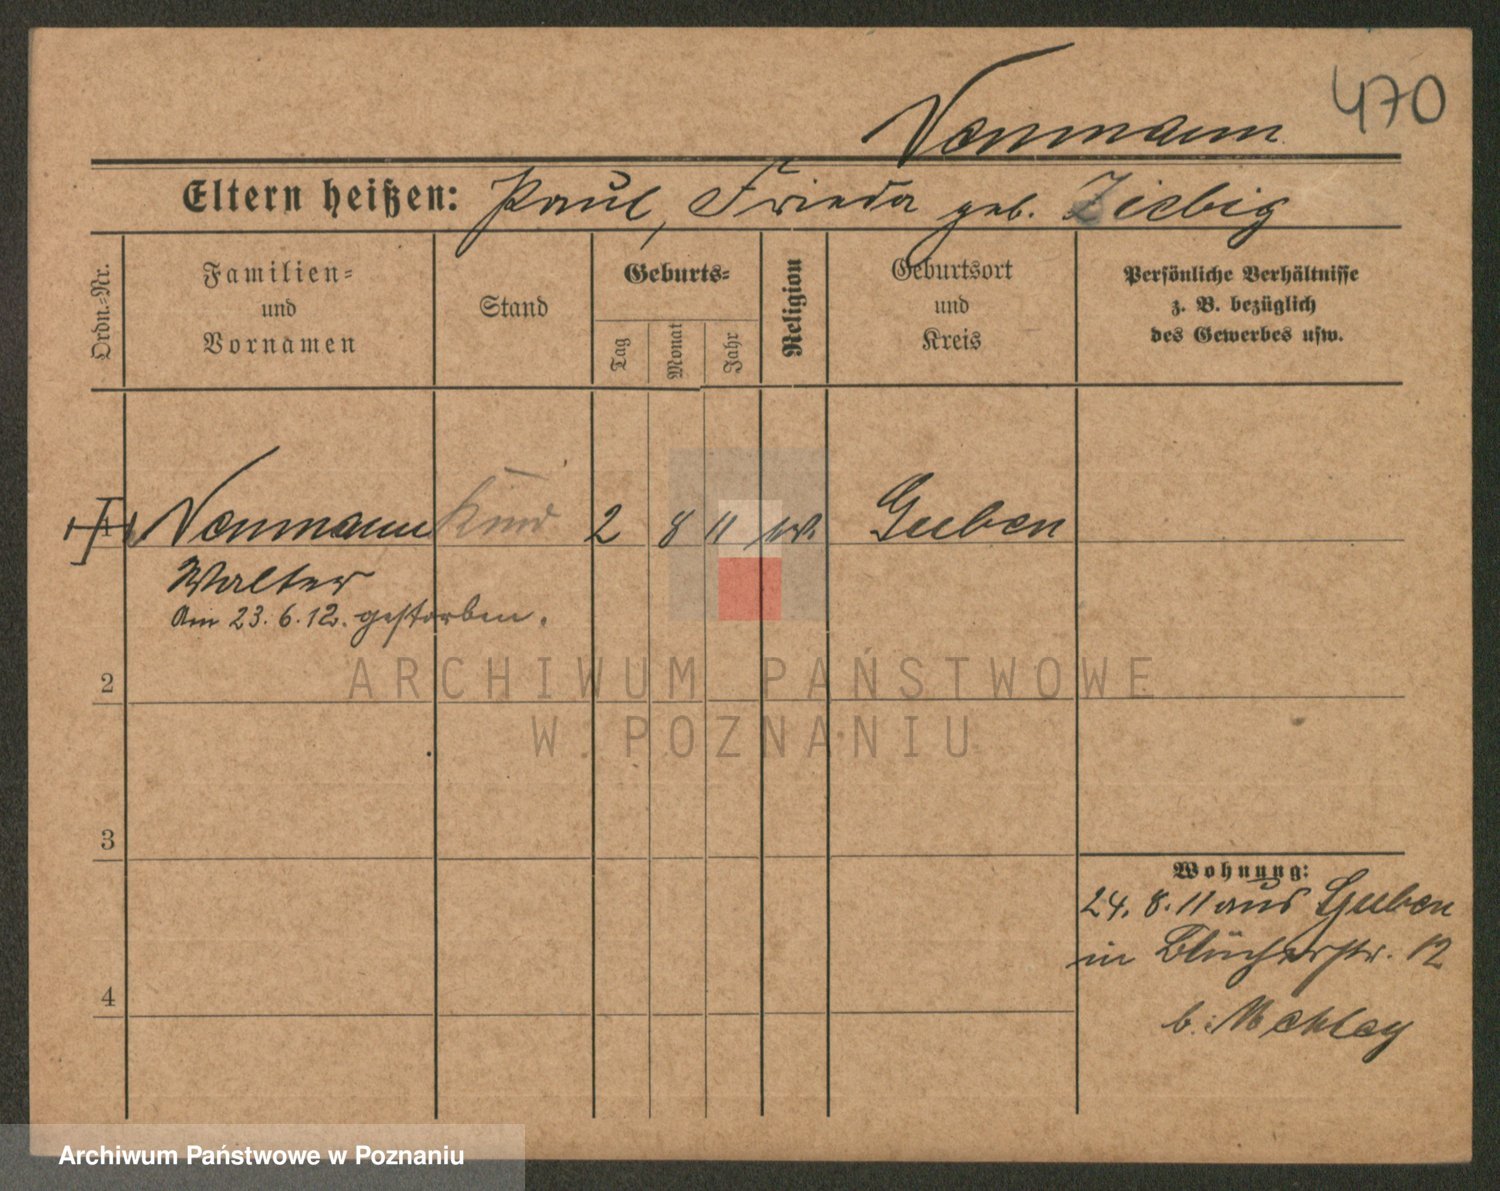 470
Nonnmann
Eltern heißen: Paul, Frieda geb. Ziebig
Ordn.-Nr.
Familien-
und
Vornamen
Stand
Geburts-
Tag
Monat
Jahr
Religion
Geburtsort
und
Kreis
Persönliche Verhältnisse
z. B. bezüglich
des Gewerbes usw.
1 Nonnmann Kind 2 8 11 Guben
Walter
Am 23. 6. 12. gestorben.
ARCHIWUM PAŃSTWOWE
W POZNANIU
2
3
Wohnung:
24. 8. 11 aus Guben
in Blücherstr. 12
4
b.
Archiwum Państwowe w Poznaniu